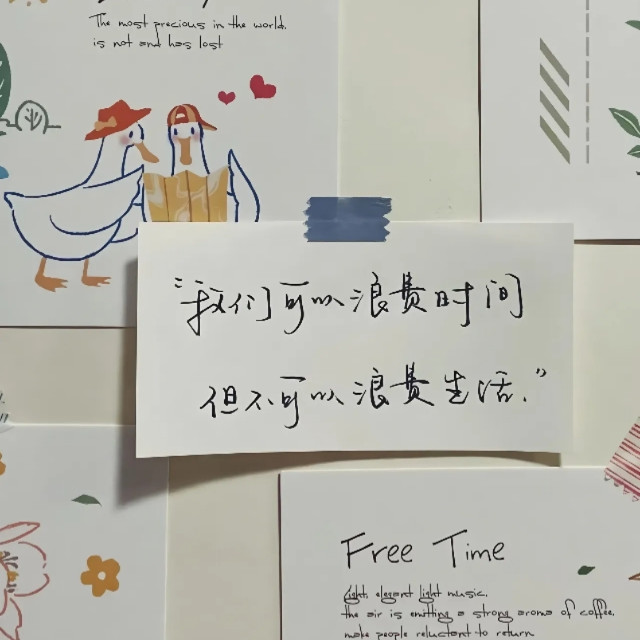 The most precious in the world.
is not and has lost
“我们可以浪费时间
但不可以浪费生活.”
Free Time
light, elegant light music.
the air is emitting a strong aroma of coffee.
make people reluctant to return